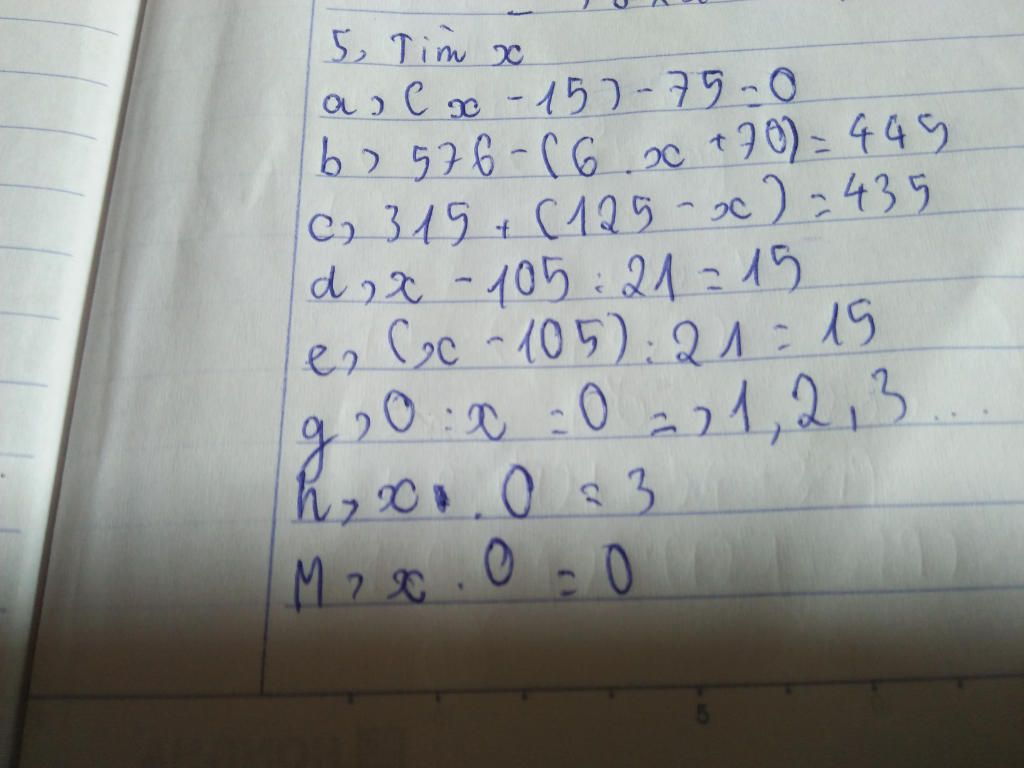 5, Tìm x
a, (x - 15) - 75 = 0
b, 576 - (6 . x + 70) = 445
c, 315 + (125 - x) = 435
d, x - 105 : 21 = 15
e, (x - 105) : 21 = 15
g, 0 : x = 0 => 1, 2, 3 ...
h, x . 0 = 3
M, x . 0 = 0
5